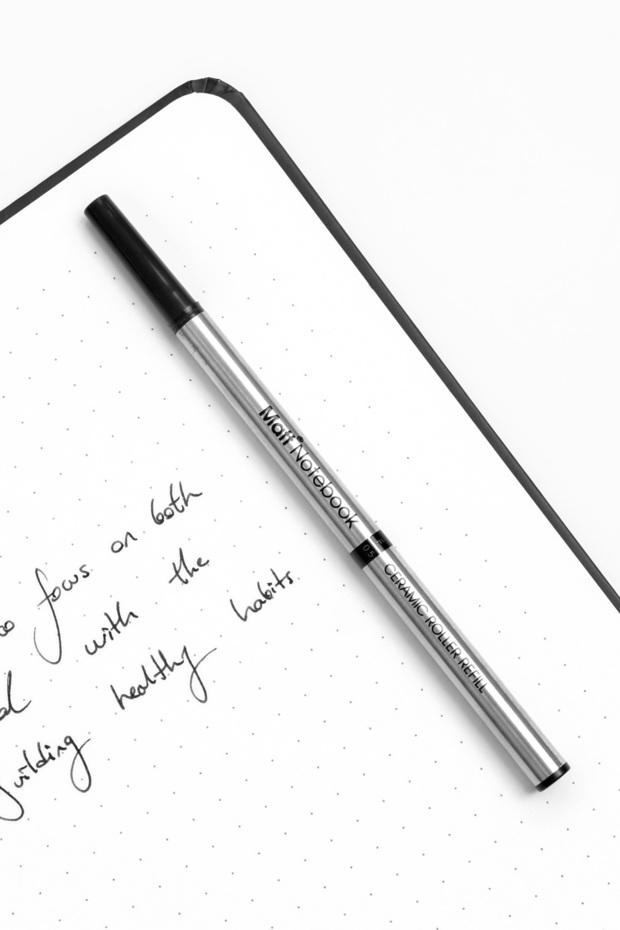 Matt Notebook
0.5 F
CERAMIC ROLLER REFILL
focus on both
with the
building healthy habits